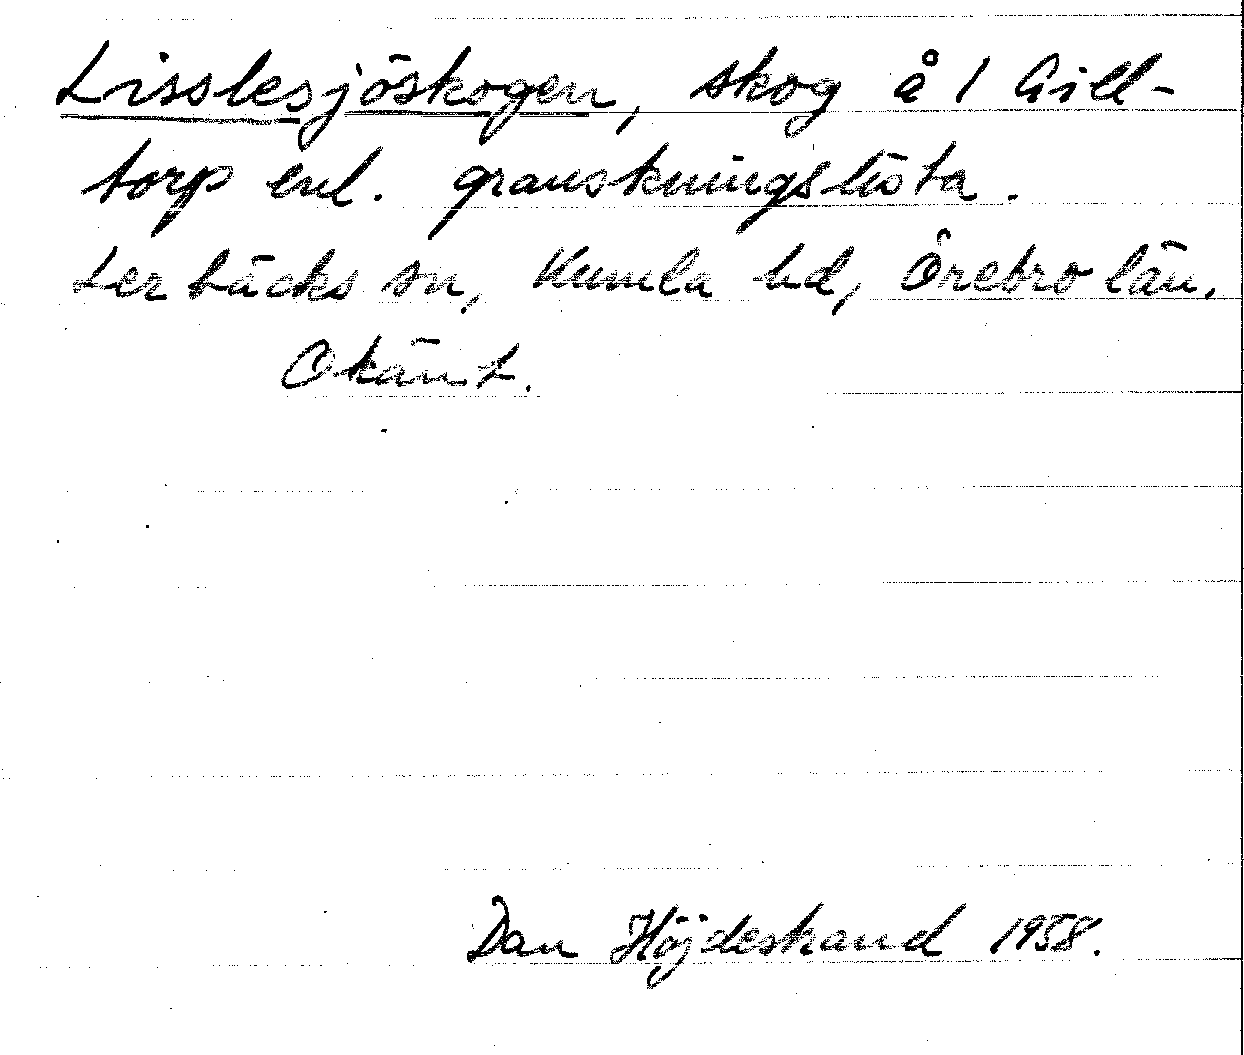 Lisslesjöskogen, skog å 1 Gill-
torp enl. granskningslista.
Lerbäcks sn, Kumla hd, Örebro län.
Okänt.
Dan Höjdestrand 1958.